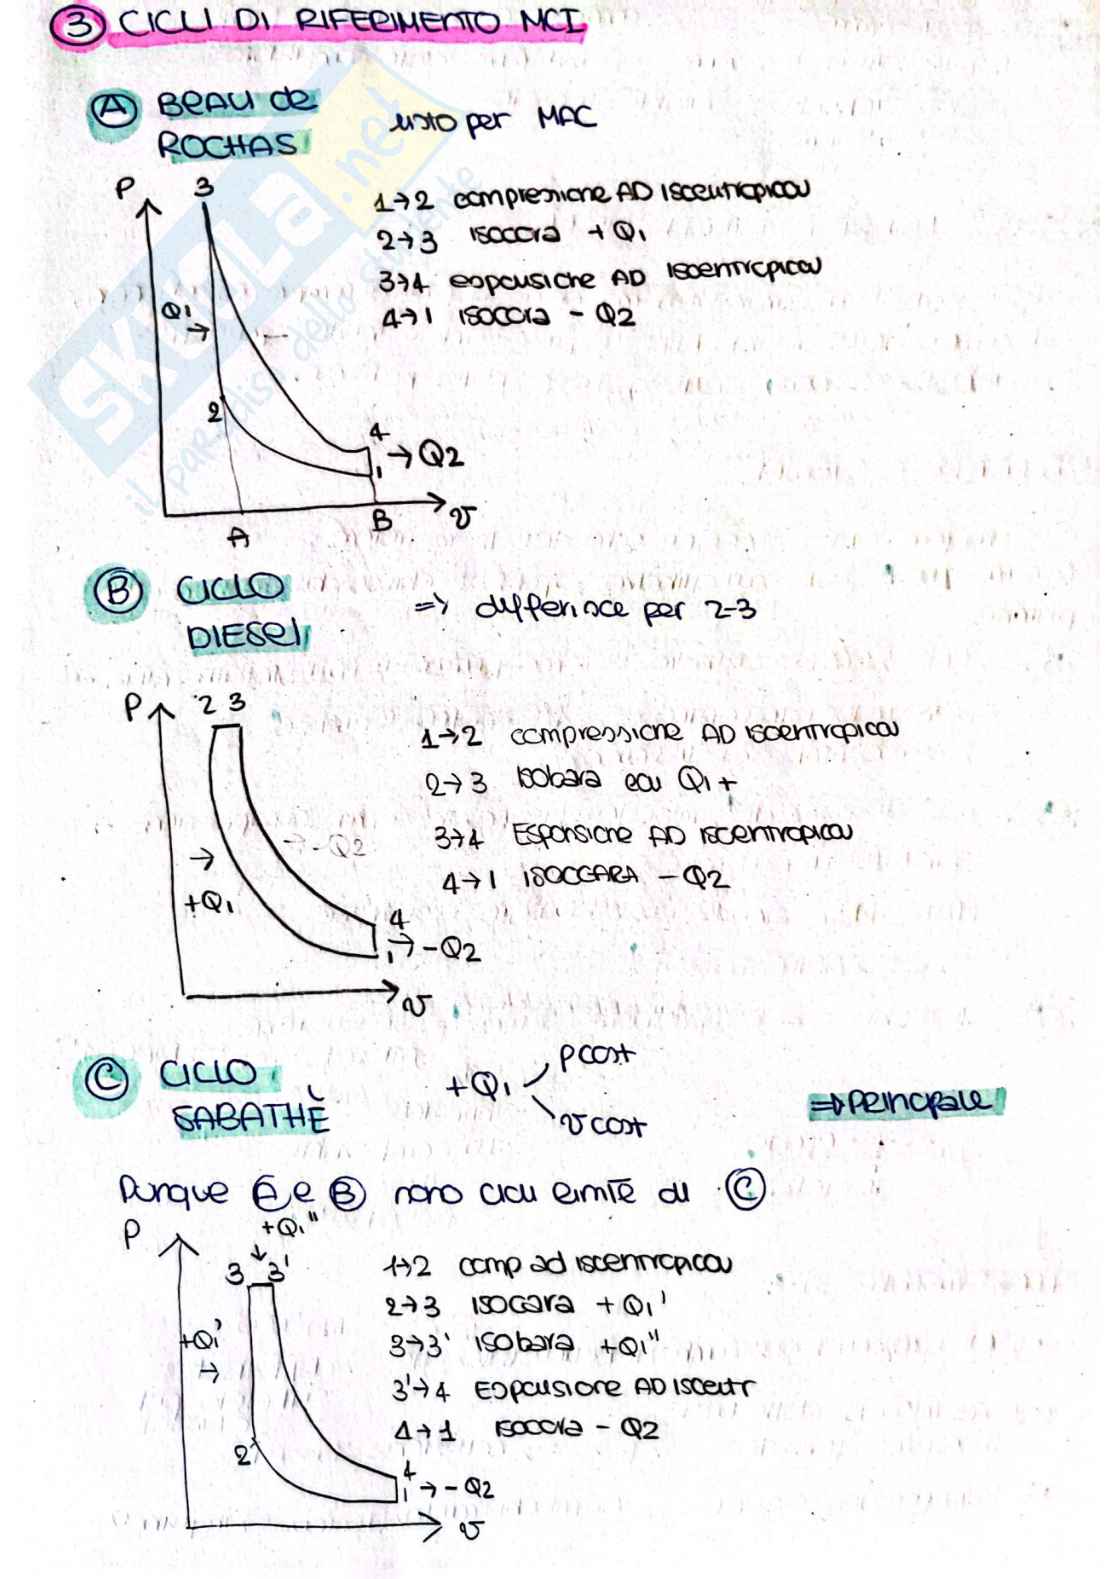 ③ CICLI DI RIFERIMENTO MCI
Ⓐ BEAU de
ROCHAS
usato per MAC
P
3
1→2 compressione AD isoentropica
2→3 isocora +Q1
3→4 espansione AD isoentropica
4→1 isocora - Q2
Q1
→
2
4
→ Q2
1
A
B
v
Ⓑ CICLO
DIESEL
=> differisce per 2-3
P
2 3
1→2 compressione AD isoentropica
2→3 isobara con Q1+
3→4 Espansione AD isoentropica
4→1 ISOCOARA - Q2
→ -Q2
→
+Q1
4
1
→ -Q2
v
Ⓒ CICLO
SABATHÈ
+Q1
p cost
v cost
⇒ PRINCIPALE
Dunque Ⓐ e Ⓑ sono cicli limite di Ⓒ
P
+Q1''
3 3'
1→2 comp ad isoentropica
2→3 isocara +Q1'
3→3' isobara +Q1''
3'→4 Espansione AD isoentr
4→1 isocora - Q2
+Q1'
→
2
4
1
→ - Q2
v
SKUOLA.net
il paradiso dello studente